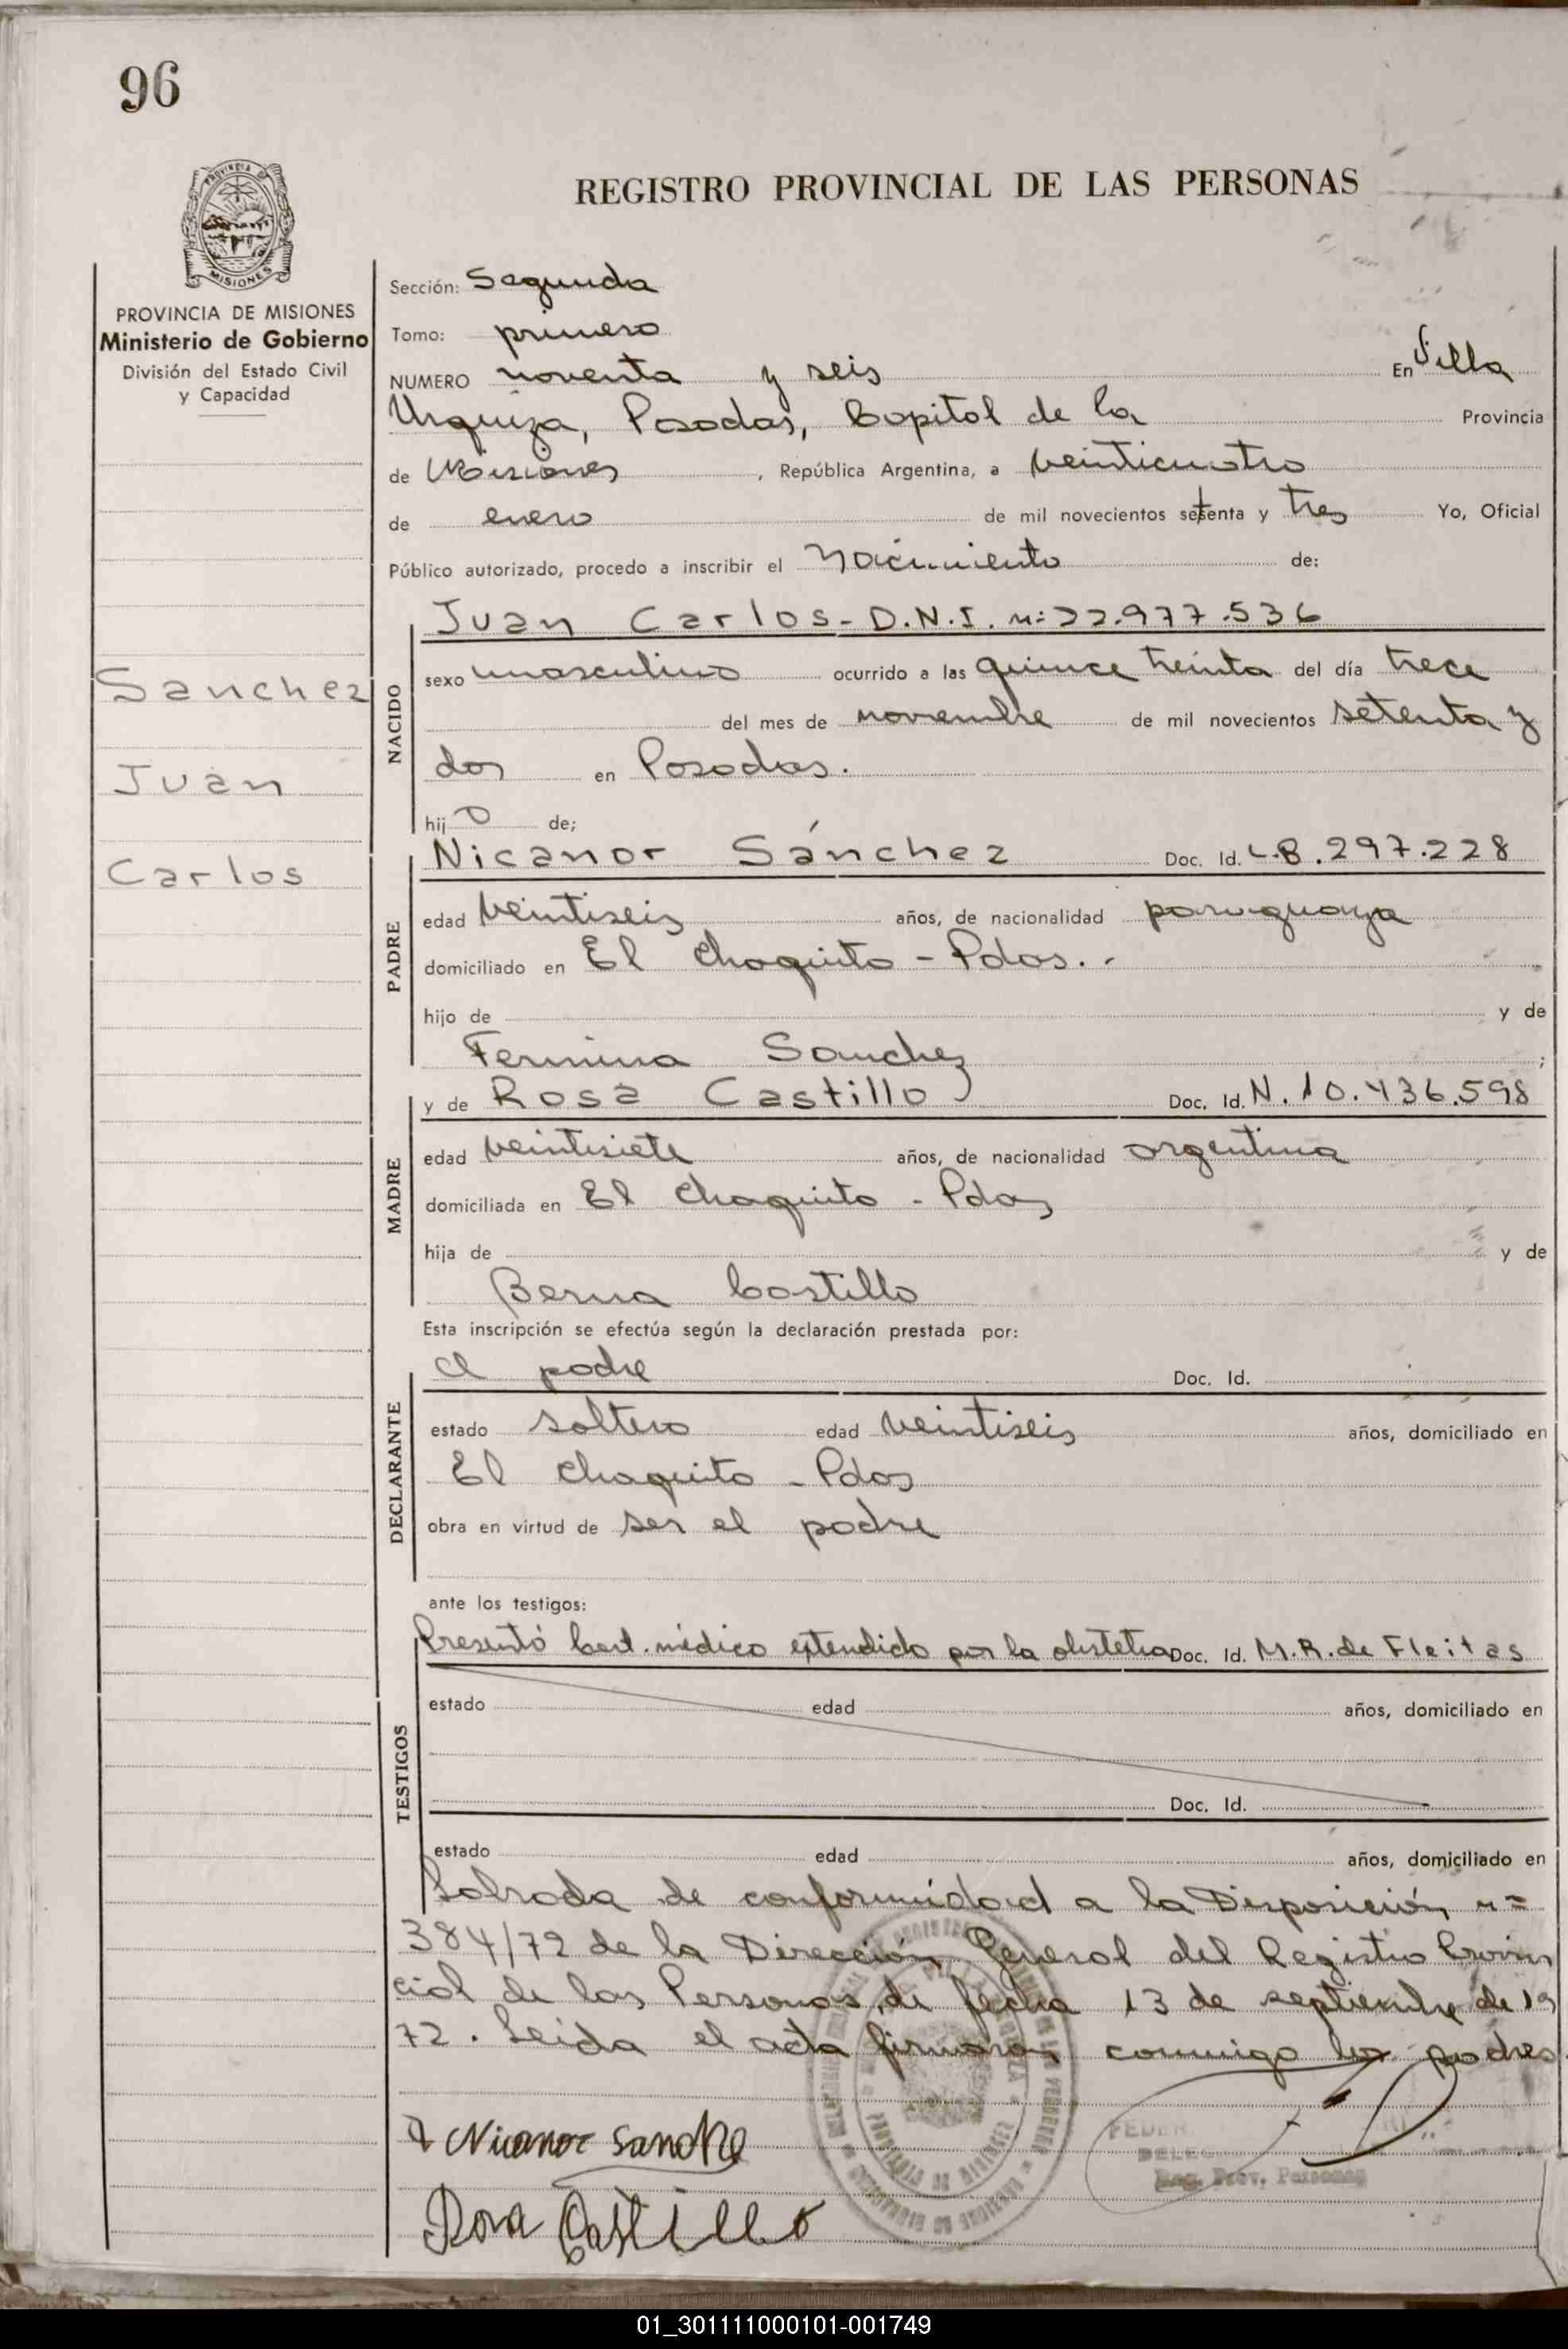 96
REGISTRO PROVINCIAL DE LAS PERSONAS
MISIONES
PROVINCIA DE MISIONES
Ministerio de Gobierno
División del Estado Civil
y Capacidad
Sección: Segunda
Tomo: primero
NUMERO noventa y seis En Villa
Urquiza, Posadas, Capital de la Provincia
de Misiones, República Argentina, a veinticuatro
de enero de mil novecientos setenta y tres Yo, Oficial
Público autorizado, procedo a inscribir el Nacimiento de:
Juan Carlos - D.N.I. n: 22.977.536
Sanchez
Juan
Carlos
NACIDO
sexo masculino ocurrido a las quince treinta del día trece
del mes de noviembre de mil novecientos setenta y
dos en Posadas.
hijo de;
PADRE
Nicanor Sánchez Doc. Id. L.B. 297.228
edad veintiseis años, de nacionalidad paraguaya
domiciliado en El Chaquito - Pdas. -
hijo de y de
Fermina Sanchez ;
MADRE
y de Rosa Castillo Doc. Id. N. 10.436.598
edad veintisiete años, de nacionalidad argentina
domiciliada en El Chaquito - Pdas
hija de y de
Berna Castillo
Esta inscripción se efectúa según la declaración prestada por:
DECLARANTE
el padre Doc. Id.
estado soltero edad veintiseis años, domiciliado en
El Chaquito - Pdas
obra en virtud de ser el padre
ante los testigos:
TESTIGOS
Presentó Cert. médico extendido por la obstetra Doc. Id. M.R. de Fleitas
estado edad años, domiciliado en
Doc. Id.
estado edad años, domiciliado en
Labrada de conformidad a la Disposición n=
384/72 de la Dirección General del Registro Provin
cial de las Personas, de fecha 13 de septiembre de 19
72. Leida el acta firmaron conmigo los padres
Nicanor Sanche
Rosa Castillo
Reg. Prov. Personas
01_301111000101-001749